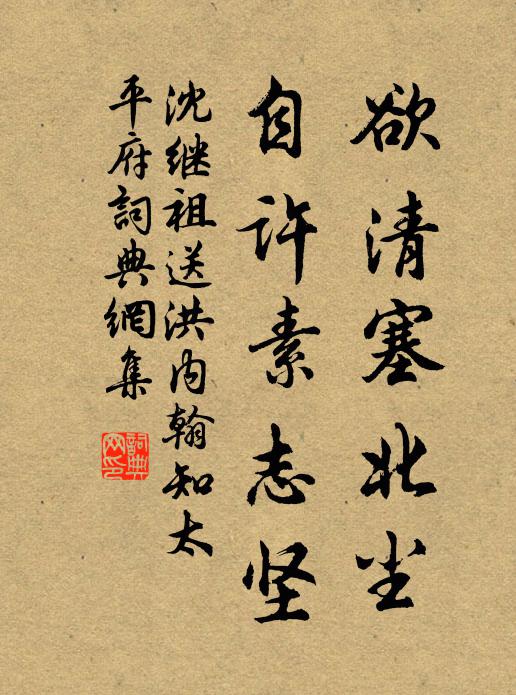 欲清塞北尘
自许素志坚
沈继祖送洪内翰知太
平府詞典網集
詞典
网印